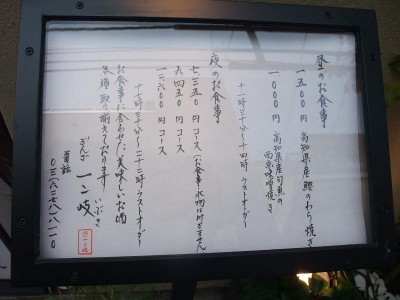 昼のお食事
一五〇〇円 高知県産鰹のわら焼き
一〇〇〇円 高知県産旬魚の西京味噌焼き
十一時三十分〜十四時 ラストオーダー
夜のお食事
七三五〇円 コース(お食事・水物は付きません)
九四五〇円 コース
一三六〇〇円 コース
十七時三十分〜二十二時 ラストオーダー
お食事に合わせた美味しいお酒
各種取り揃えております
ぎんざ 一二岐 いぶき
電話 〇三六二七八八一一〇